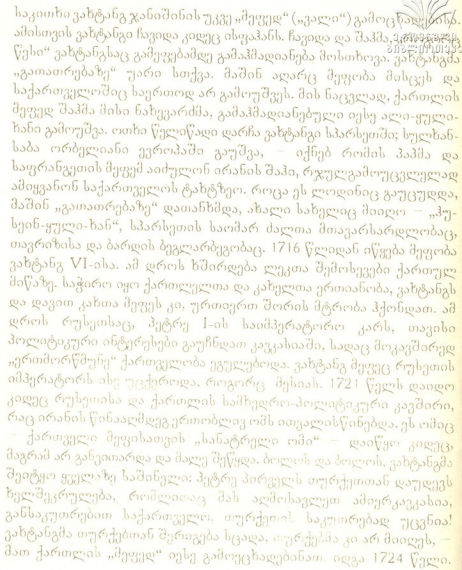 საკითხი ვახტანგ ჯანიშინის უკვე „მეფედ“ („ვალი“) გამოცხადებისა.
ამისთვის ვახტანგი ჩავიდა კიდეც ისფაჰანს. ჩავიდა და შაჰმა,
წესი“ ვახტანგსაც გამეფებამდე გამაჰმადიანება მოსთხოვა. ვახტანგმა
„გათათრებაზე“ უარი სთქვა. მაშინ აღარც მეფობა მისცეს და
საქართველოშიც საერთოდ არ გამოუშვეს. მის ნაცვლად, ქართლის
მეფედ შაჰმა მისი ნახევარძმა, გამაჰმადიანებული იესე ალი-ყული-
ხანი გამოუშვა. ოთხი წელიწადი დარჩა ვახტანგი სპარსეთში; სულხან-
საბა ორბელიანი ევროპაში გაუშვა, – იქნებ რომის პაპმა და
საფრანგეთის მეფემ აიძულონ ირანის შაჰი, რჯულგამოუცვლელად
ამიყვანონ საქართველოს ტახტზეო. როცა ეს ლოდინიც გაუცუდდა,
მაშინ „გათათრებაზე“ დათანხმდა, ახალი სახელიც მიიღო – „ჰუ-
სეინ-ყული-ხან“, სპარსეთის საომარ ძალთა მთავარსარდლობაც,
თავრიზისა და ბარდის ბეგლარბეგობაც. 1716 წლიდან იწყება მეფობა
ვახტანგ VI-ისა. ამ დროს ხშირდება ლეკთა შემოსევები ქართულ
მიწაზე. საჭირო იყო ქართლელთა და კახელთა ერთიანობა, ვახტანგს
და დავით კახთა მეფეს კი, ურთიერთ შორის მტრობა ჰქონდათ. ამ
დროს რუსეთსაც, პეტრე I-ის საიმპერატორო კარს, თავისი
პოლიტიკური ინტერესები გაუჩნდათ კავკასიაში, სადაც მოკავშირედ
„ერთმორწმუნე“ ქართველობა ეგულებოდა. ვახტანგ მეფეც რუსეთის
იმპერატორს ისე უცქეროდა, როგორც მესიას. 1721 წელს დაიდო
კიდეც რუსეთისა და ქართლის სამხედრო-პოლიტიკური კავშირი,
რაც ირანის წინააღმდეგ ერთობლივ ომს ითვალისწინებდა. ეს ომიც
– ქართველი მეფისათვის „სანატრელი ომი“ – დაიწყო კიდეც,
მაგრამ არ განვითარდა და მალე შეწყდა. ბოლოს და ბოლოს, ვახტანგმა
შეიტყო ყველაზე საშინელი: პეტრე პირველს თურქეთთან დაუდევს
ხელშეკრულება, რომლითაც მას აღმოსავლეთ ამიერკავკასია,
განსაკუთრებით საქართველო, თურქეთის საკუთრებად უცვნია!
ვახტანგმა თურქებთან შერიგება სცადა, თურქებმა კი არ მიიღეს, –
მათ ქართლის „მეფედ“ იესე გამოეცხადებინათ. იდგა 1724 წელი.